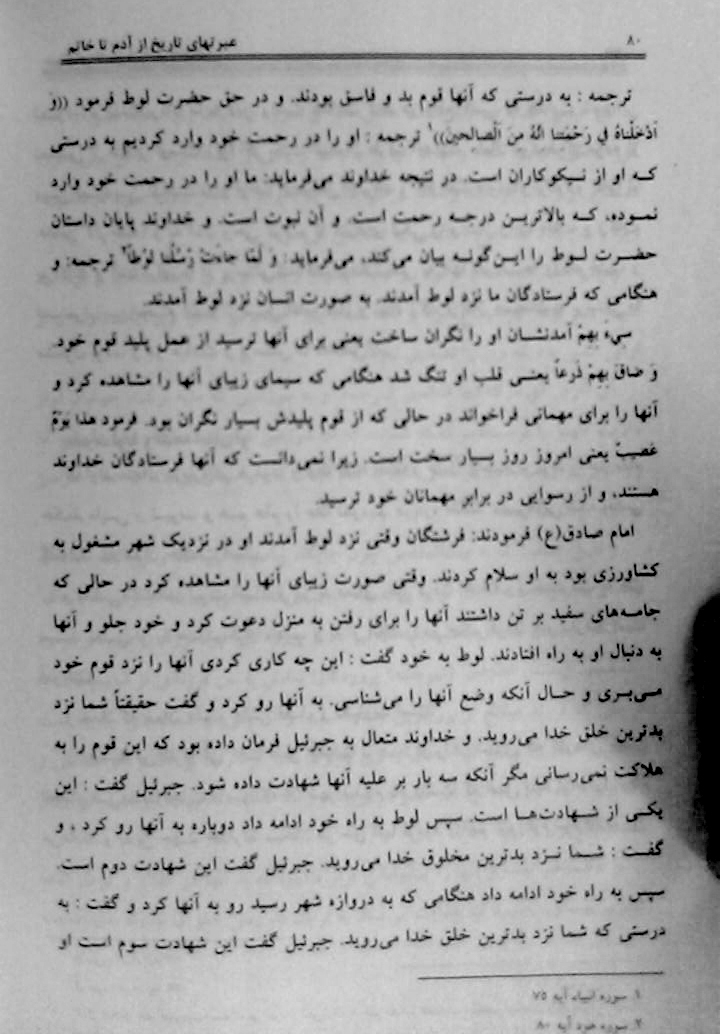 ۸۰ عبرتهای تاریخ از آدم تا خاتم
ترجمه : به درستی که آنها قوم بد و فاسق بودند. و در حق حضرت لوط فرمود ((وَ
اَدْخَلْناهُ فِی رَحْمَتِنا اِنَّهُ مِنَ الْصالِحینَ))۱ ترجمه : او را در رحمت خود وارد کردیم به درستی
که او از نیکوکاران است. در نتیجه خداوند می‌فرماید: ما او را در رحمت خود وارد
نموده، که بالاترین درجه رحمت است. و آن نبوت است. و خداوند پایان داستان
حضرت لوط را این‌گونه بیان می‌کند، می‌فرماید: وَ لَمّا جاءَتْ رُسُلُنا لُوْطاً۲ ترجمه: و
هنگامی که فرستادگان ما نزد لوط آمدند. به صورت انسان نزد لوط آمدند.
سیءَ بِهِمْ آمدنشان او را نگران ساخت یعنی برای آنها ترسید از عمل پلید قوم خود.
وَ ضاقَ بِهِمْ ذَرعاً یعنی قلب او تنگ شد هنگامی که سیمای زیبای آنها را مشاهده کرد و
آنها را برای مهمانی فراخواند در حالی که از قوم پلیدش بسیار نگران بود. فرمود هذا یَوْمٌ
عَصیبٌ یعنی امروز روز بسیار سخت است. زیرا نمی‌دانست که آنها فرستادگان خداوند
هستند، و از رسوایی در برابر مهمانان خود ترسید.
امام صادق(ع) فرمودند: فرشتگان وقتی نزد لوط آمدند او در نزدیک شهر مشغول به
کشاورزی بود به او سلام کردند. وقتی صورت زیبای آنها را مشاهده کرد در حالی که
جامه‌های سفید بر تن داشتند آنها را برای رفتن به منزل دعوت کرد و خود جلو و آنها
به دنبال او به راه افتادند. لوط به خود گفت : این چه کاری کردی آنها را نزد قوم خود
می‌بری و حال آنکه وضع آنها را می‌شناسی. به آنها رو کرد و گفت حقیقتاً شما نزد
بدترین خلق خدا می‌روید. و خداوند متعال به جبرئیل فرمان داده بود که این قوم را به
هلاکت نمی‌رسانی مگر آنکه سه بار بر علیه آنها شهادت داده شود. جبرئیل گفت : این
یکی از شهادت‌ها است. سپس لوط به راه خود ادامه داد دوباره به آنها رو کرد ، و
گفت : شما نزد بدترین مخلوق خدا می‌روید. جبرئیل گفت این شهادت دوم است.
سپس به راه خود ادامه داد هنگامی که به دروازه شهر رسید رو به آنها کرد و گفت : به
درستی که شما نزد بدترین خلق خدا می‌روید. جبرئیل گفت این شهادت سوم است او
۱. سوره انبیاء آیه ۷۵
۲. سوره هود آیه ۸۰